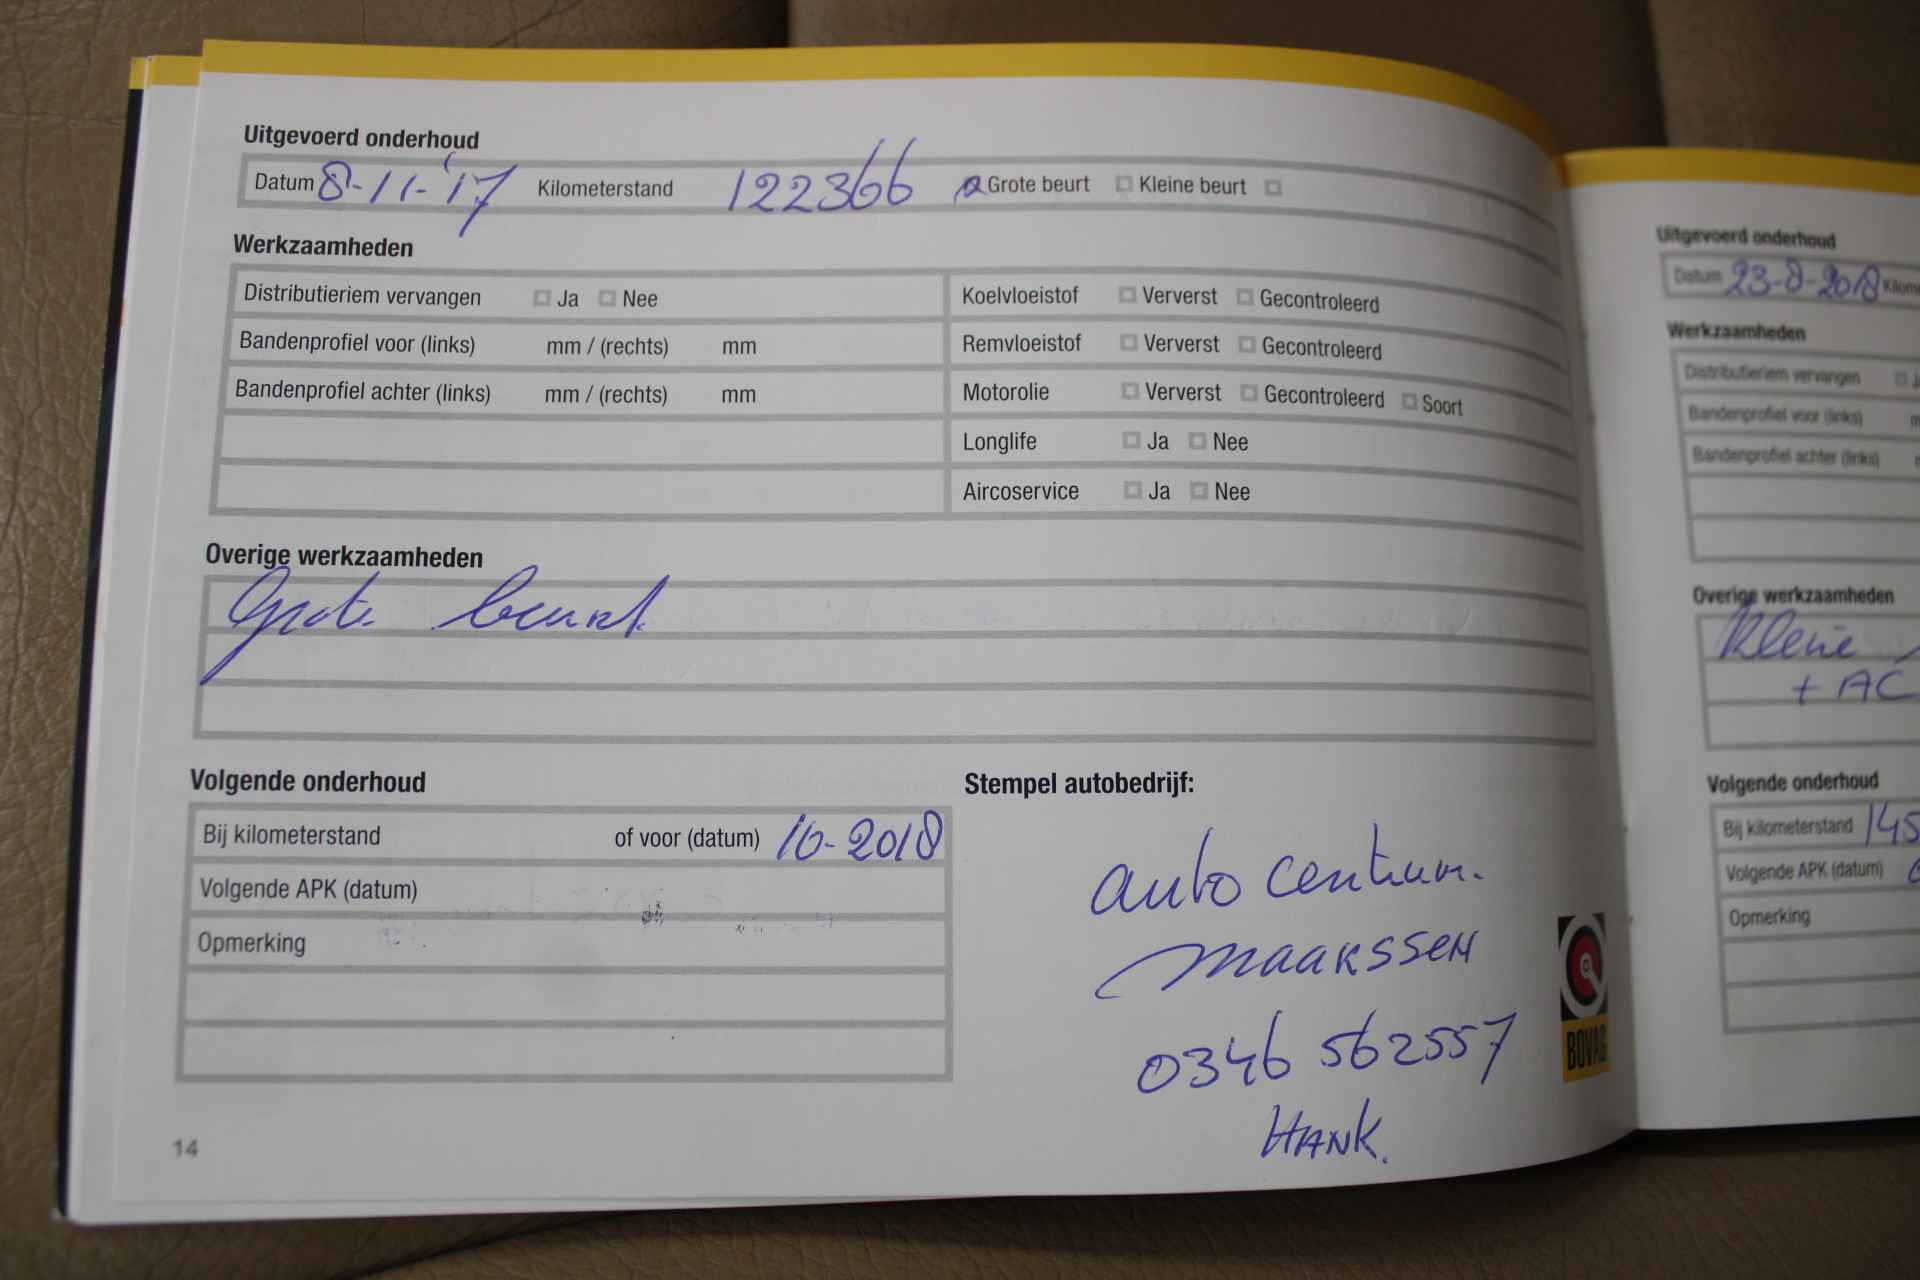 Uitgevoerd onderhoud
Datum 8-11-'17 Kilometerstand 122366 Grote beurt Kleine beurt
Werkzaamheden
Distributieriem vervangen Ja Nee
Bandenprofiel voor (links) mm / (rechts) mm
Bandenprofiel achter (links) mm / (rechts) mm
Koelvloeistof Ververst Gecontroleerd
Remvloeistof Ververst Gecontroleerd
Motorolie Ververst Gecontroleerd Soort
Longlife Ja Nee
Aircoservice Ja Nee
Overige werkzaamheden
Grote beurt
Volgende onderhoud
Bij kilometerstand of voor (datum) 10-2018
Volgende APK (datum)
Opmerking
Stempel autobedrijf:
auto centrum.
MAARSSEN
0346 562557
HANK.
BOVAG
14
Uitgevoerd onderhoud
Datum 23-8-2018 Kilom
Werkzaamheden
Distributieriem vervangen
Bandenprofiel voor (links)
Bandenprofiel achter (links)
Overige werkzaamheden
Kleine
+ AC
Volgende onderhoud
Bij kilometerstand 145
Volgende APK (datum)
Opmerking